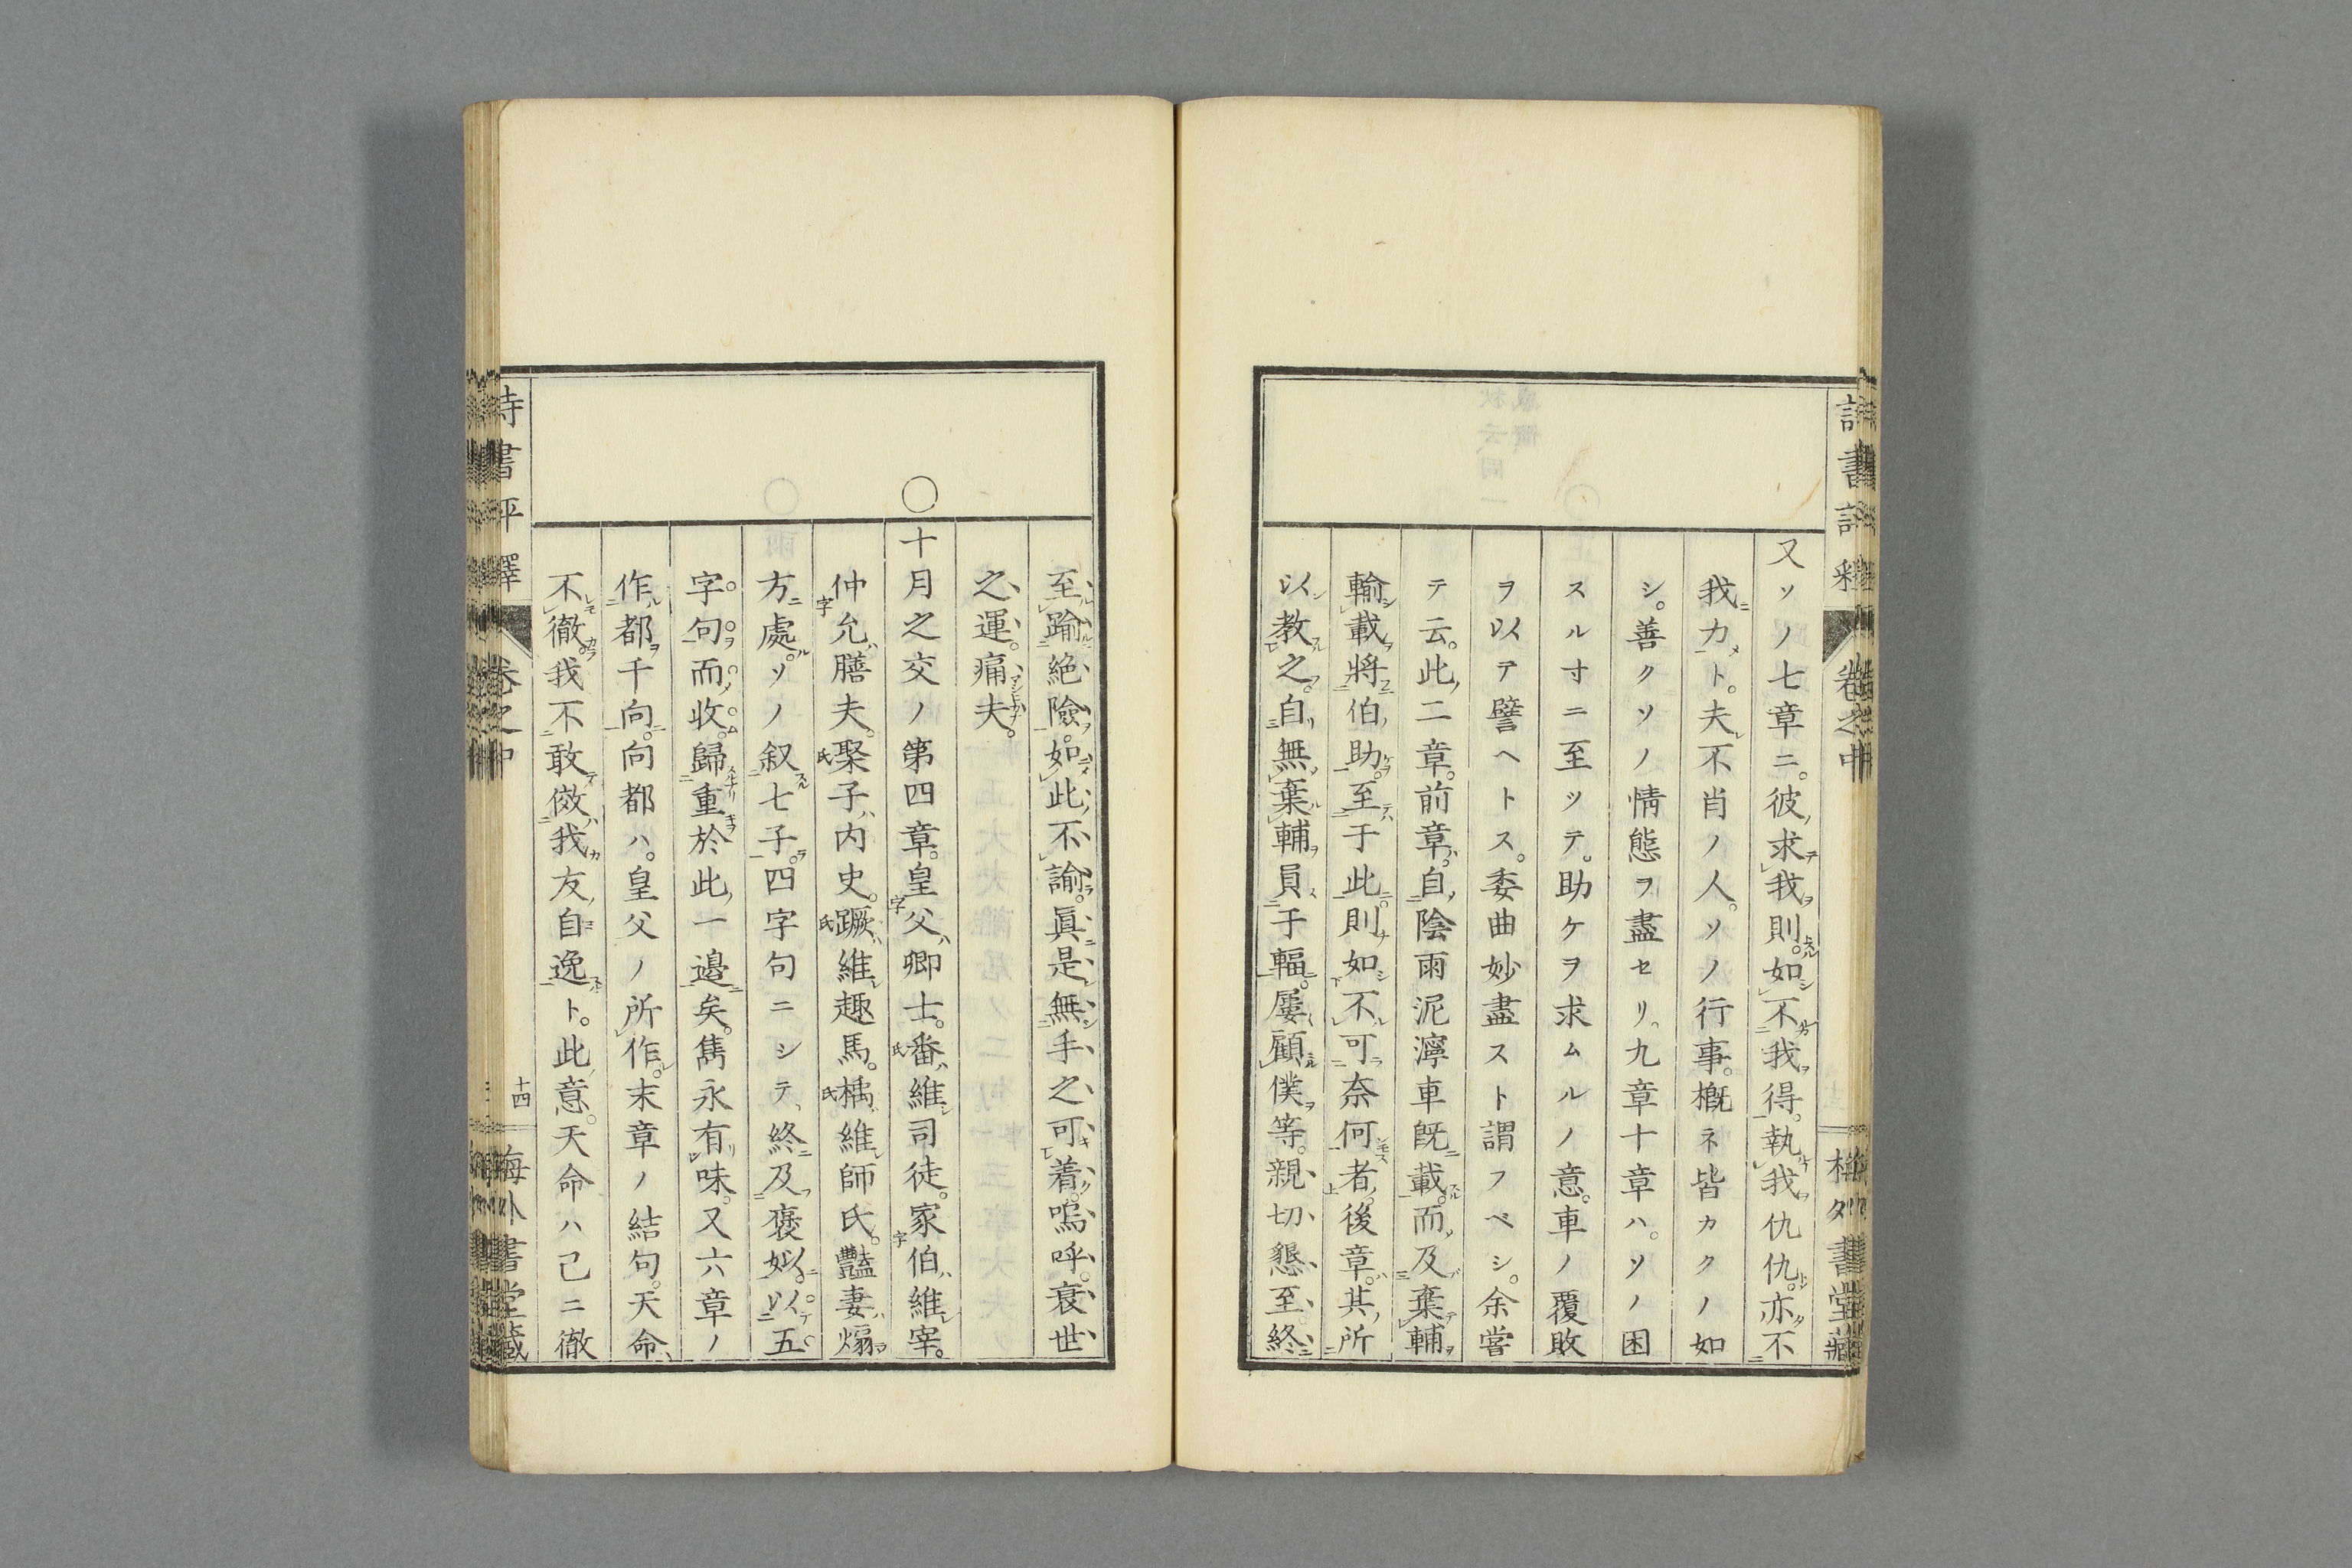 又ソノ七章ニ。彼求我則。如不我得。執我仇仇。亦不
我力ト。夫不肖ノ人。ソノ行事。概ネ皆カクノ如
シ。善クソノ情態ヲ盡セリ。九章十章ハ。ソノ困
スル寸ニ至ツテ。助ケヲ求ムルノ意。車ノ覆敗
ヲ以テ譬ヘトス。委曲妙盡スト謂フベシ。余嘗
テ云。此二章。前章。自陰雨泥濘車既載。而及棄輔
輸載將伯助。至于此則如不可奈何者。後章。其所
以教之。自無棄輔員于輻。屢顧僕等。親切懇至。終
至踰絶險。如此不諭。眞是無手之可着。嗚呼。衰世
之運。痛夫。
○十月之交ノ第四章。皇父卿士。番維司徒。家伯維宰。
仲允膳夫。聚子内史。蹶維趣馬。楀維師氏。豔妻煽
方處。ソノ叙七子。四字句ニシテ、終及褒姒。以五
字句而收。歸重於此一邊矣。雋永有味。又六章ノ
作都于向。向都ハ。皇父ノ所作。末章ノ結句。天命
不徹。我不敢傚我友自逸ト。此意。天命ハ己ニ徹
詩書評釋 卷之中
十四
梅外書堂藏